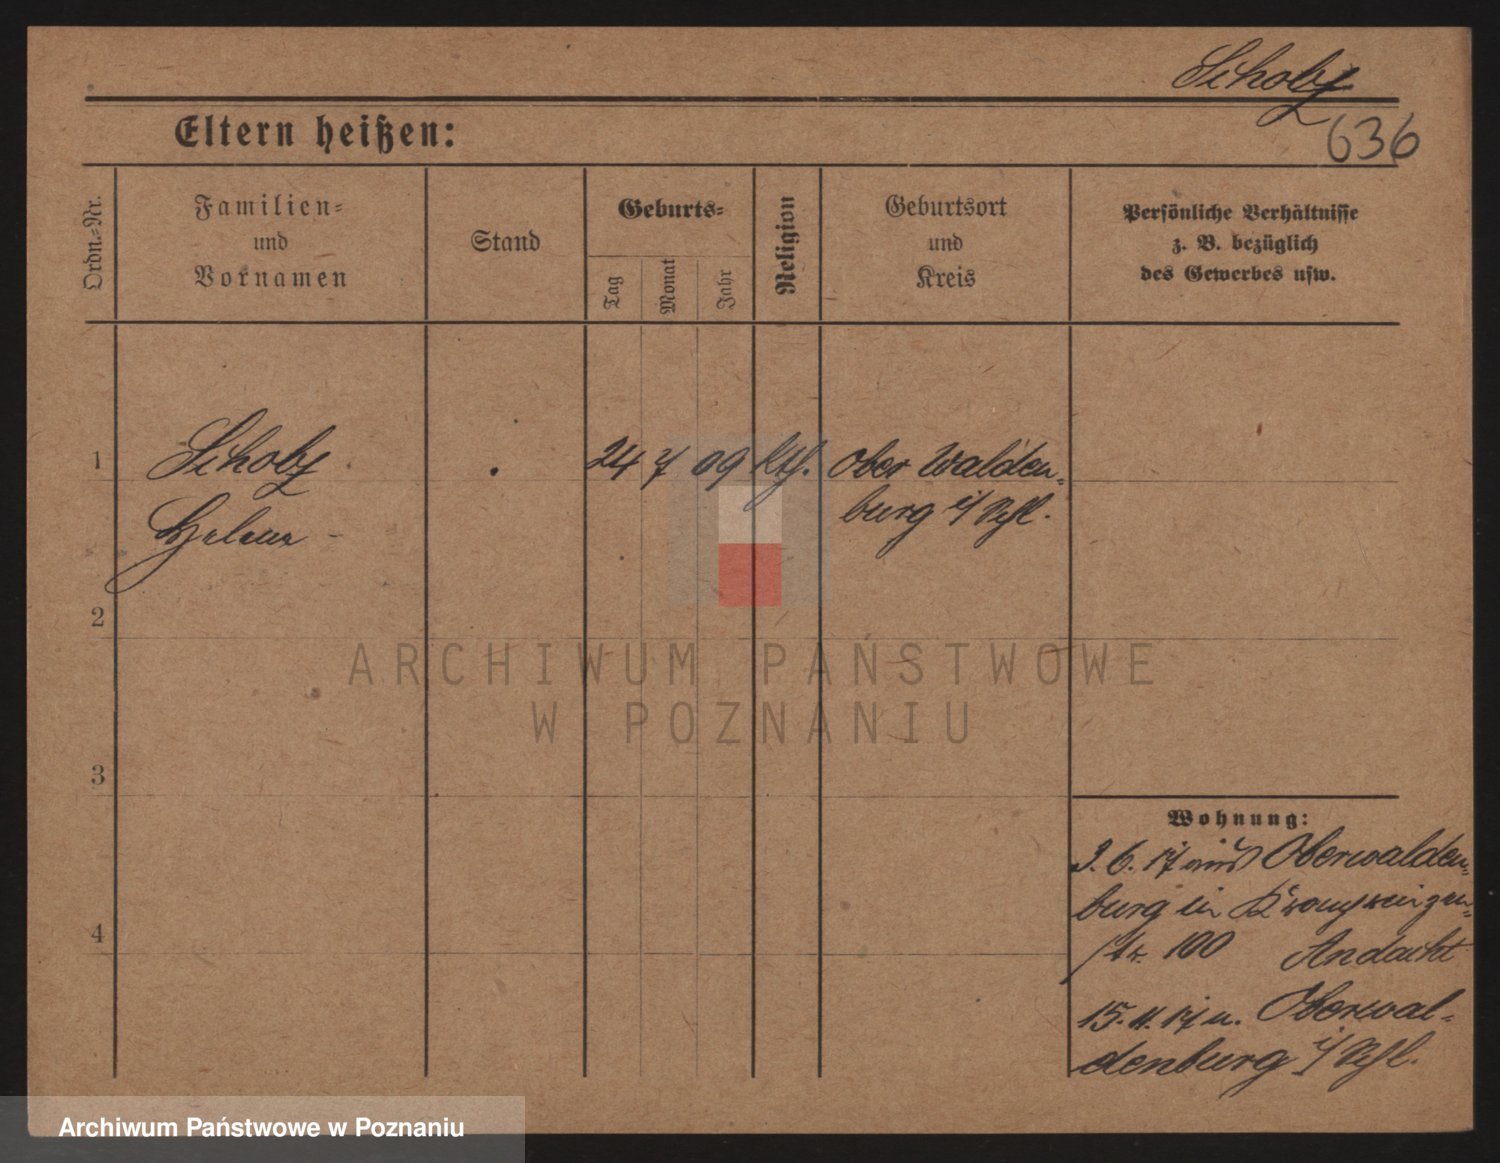 Schoby
636
Eltern heißen:
Ordn.-Nr.
Familien-
und
Vornamen
Stand
Geburts-
Tag
Monat
Jahr
Religion
Geburtsort
und
Kreis
Persönliche Verhältnisse
z. B. bezüglich
des Gewerbes usw.
1
Schoby
24 7 09 kth. Ober Walden-
Helene
burg i/Schl.
2
ARCHIWUM PAŃSTWOWE
W POZNANIU
3
Wohnung:
3. 6. 17 aus Oberwalden-
burg in Kronprinzen-
4
str. 100 Andacht
15. 11. 17 n. Oberwal-
denburg i/Schl.
Archiwum Państwowe w Poznaniu